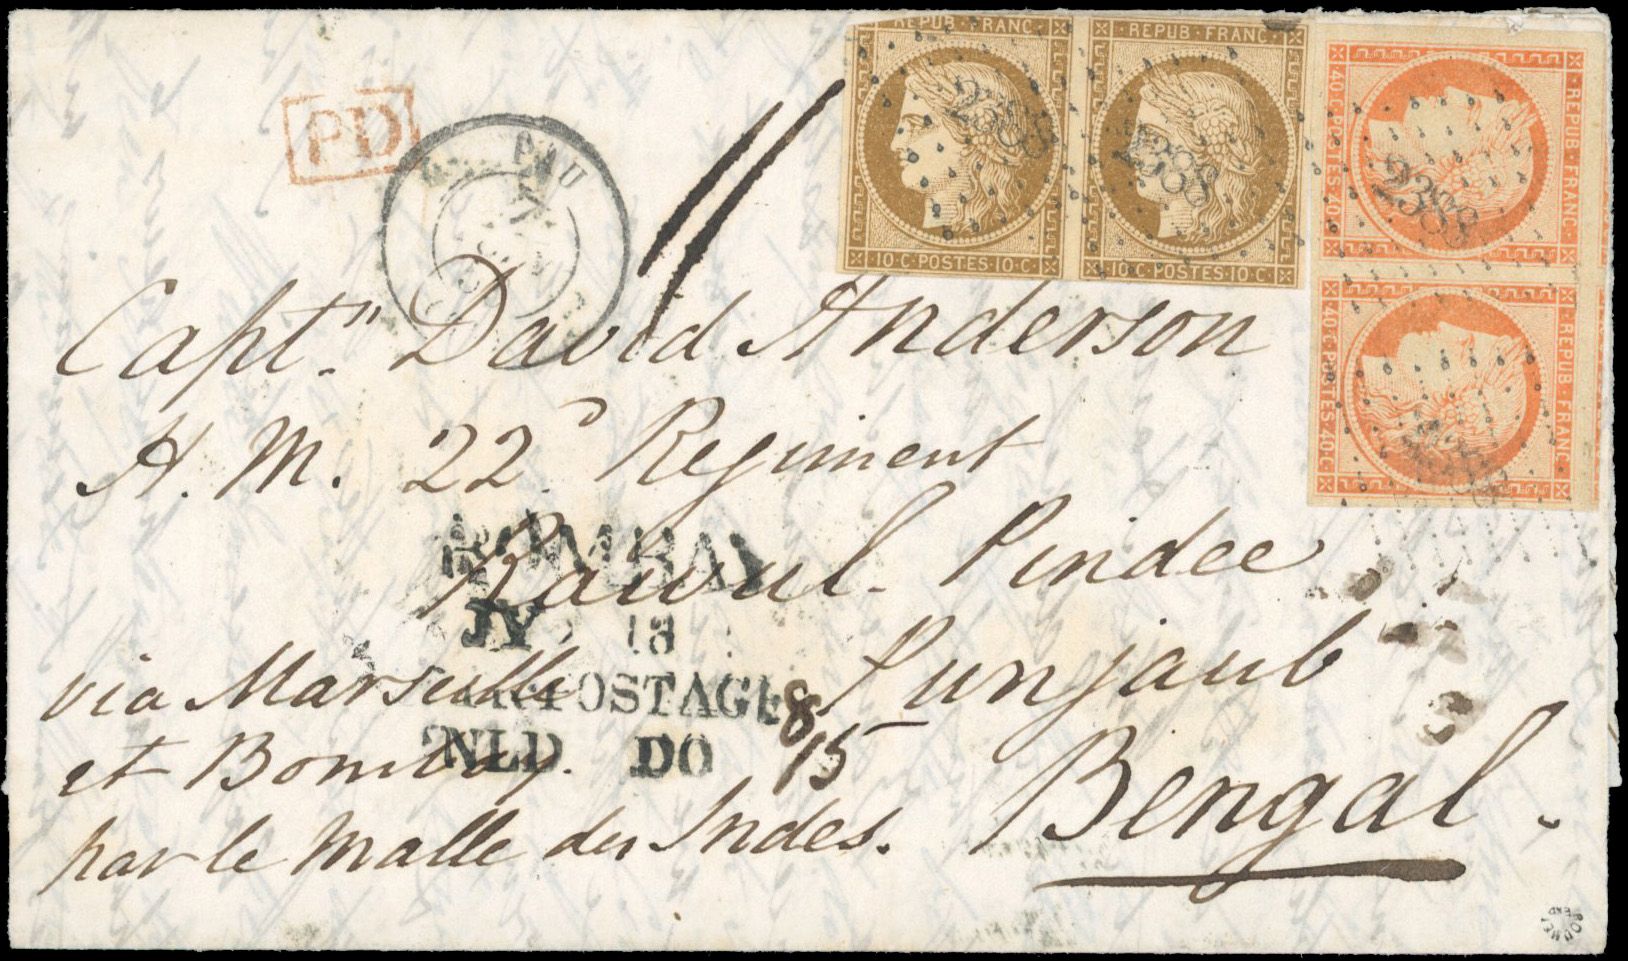 REPUB FRANC
REPUB · FRANC
10 · C · POSTES · 10 · C
10 · C · POSTES · 10 · C
REPUB · FRANC
40 · C · POSTES · 40 · C
REPUB · FRANC
40 · C · POSTES · 40 · C
2388
2388
2388
PD
PAU
Capt.n David Anderson
H. M. 22d Regiment
Rawul. Pindee
Punjaub
Bengal.
via Marseille
et Bombay.
par le Malle des Indes.
BOMBAY
JY 18
POSTAGE
INLD DO
8
15